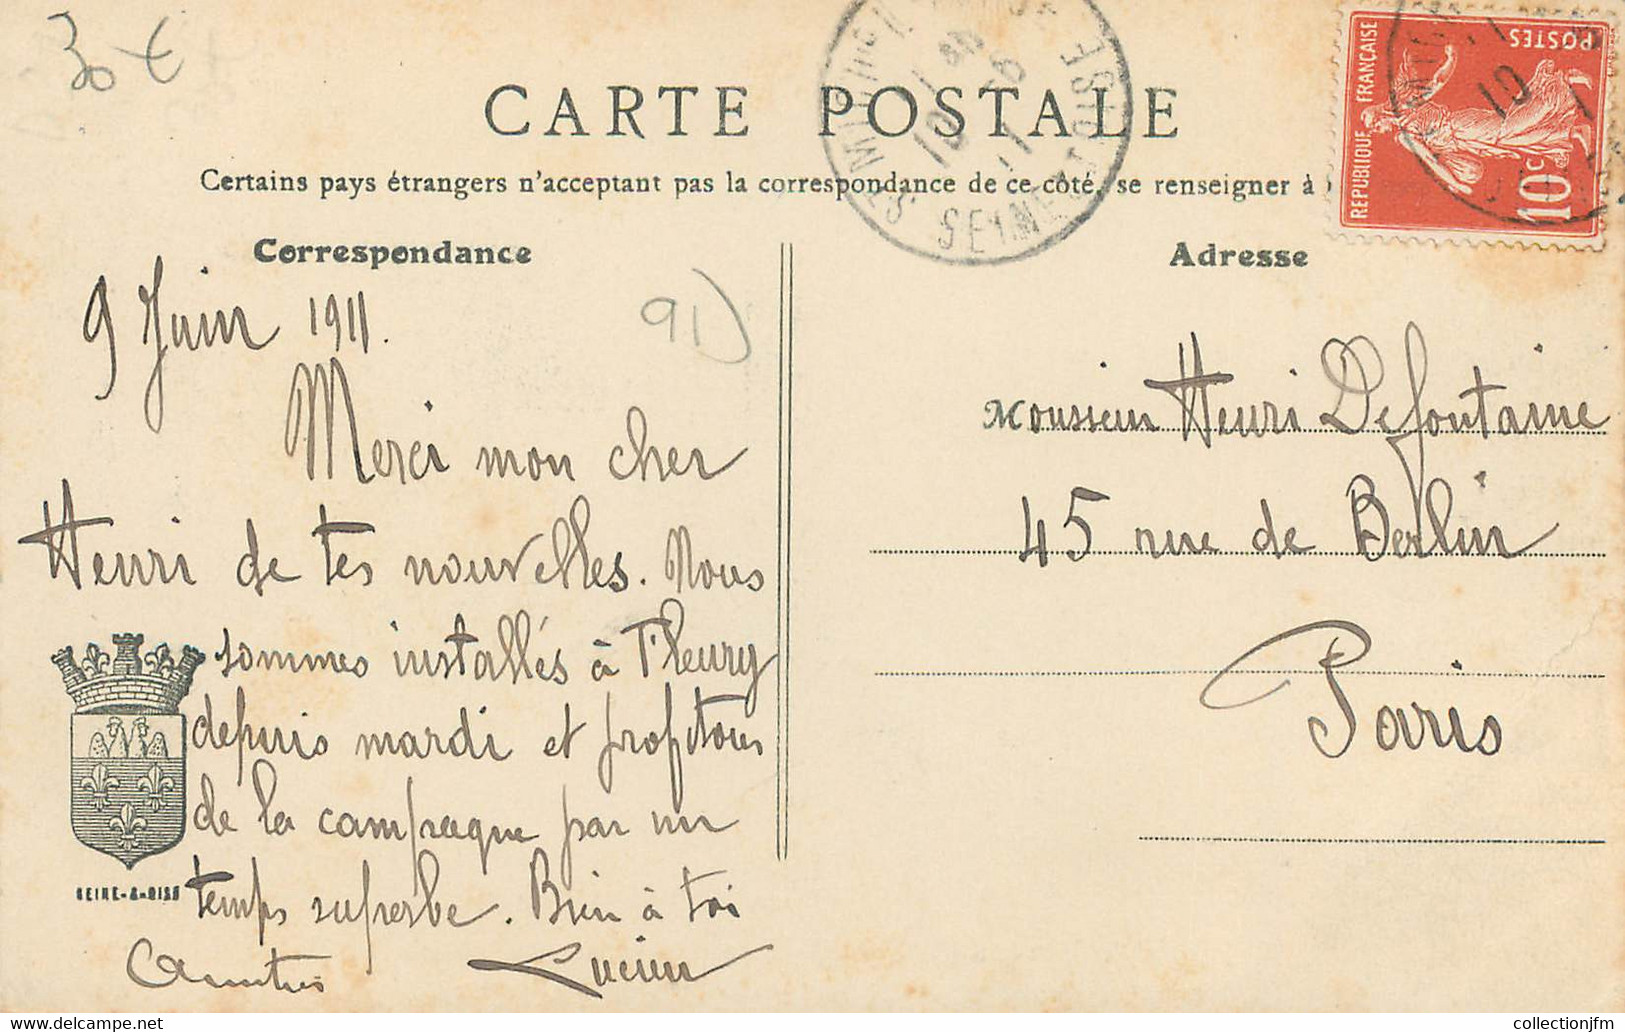 30 €
CARTE POSTALE
Certains pays étrangers n'acceptant pas la correspondance de ce côté, se renseigner à
REPUBLIQUE FRANÇAISE
POSTES
10c
SEINE-ET-OISE
Correspondance
Adresse
91)
9 Juin 1911.
Merci mon cher
Henri de tes nouvelles. Nous
sommes installés à Fleury
depuis mardi et profitons
de la campagne par un
temps superbe. Bien à toi
Lucien
SEINE-&-OISE
Monsieur Henri Defontaine
45 rue de Berlin
Paris
delcampe.net
collectionjfm